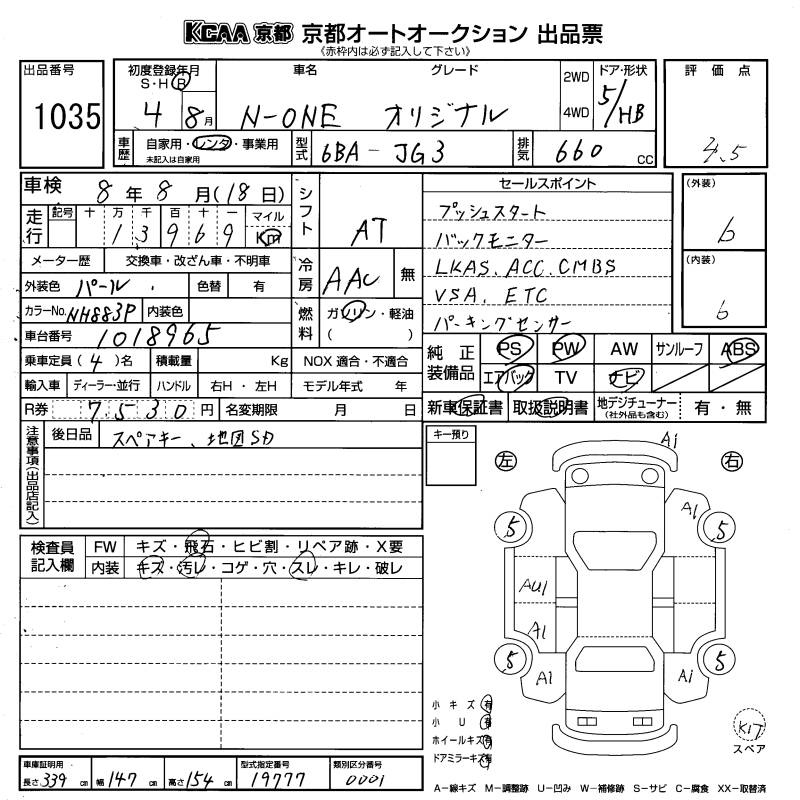 KCAA 京都 京都オートオークション 出品票
《赤枠内は必ず記入して下さい》
出品番号
1035
初度登録年月
S・H・R
4 8月
車名 グレード
N-ONE オリジナル
2WD
4WD
ドア・形状
5/HB
評価点
4.5
車歴
自家用・レンタ・事業用
未記入は自家用
型式
6BA-JG3
排気
660 cc
車検 8年8月(18日)
走行
記号 十 万 千 百 十 一 マイル
1 3 9 6 9 Km
メーター歴 交換車・改ざん車・不明車
外装色 パール 色替 有
カラーNo. NH883P 内装色
車台番号 1018965
乗車定員(4)名 積載量 Kg
輸入車 ディーラー・並行 ハンドル 右H・左H
R券 7,530円 名変期限 月 日
シフト
AT
冷房
AAC 無
燃料
ガソリン・軽油
( )
NOX 適合・不適合
モデル年式 年
セールスポイント
プッシュスタート
バックモニター
LKAS. ACC. CMBS
VSA. ETC
パーキングセンサー
(外装)
6
(内装)
6
純正装備品
PS PW AW サンルーフ ABS
エアバック TV ナビ
新車保証書 取扱説明書 地デジチューナー(社外品も含む) 有・無
注意事項(出品店記入)
後日品 スペアキー、地図SD
キー預り
検査員記入欄
FW キズ・飛石・ヒビ割・リペア跡・X要
内装 キズ・汚レ・コゲ・穴・スレ・キレ・破レ
左
右
A1
5
A1
5
AU1
A1
5
A1
A1
5
小キズ 有
小U 有
ホイールキズ 有
ドアミラーキズ 有
KIT
スペア
車庫証明用
長さ 339 cm 幅 147 cm 高さ 154 cm
型式指定番号
19777
類別区分番号
0001
A-線キズ M-調整跡 U-凹み W-補修跡 S-サビ C-腐食 XX-取替済